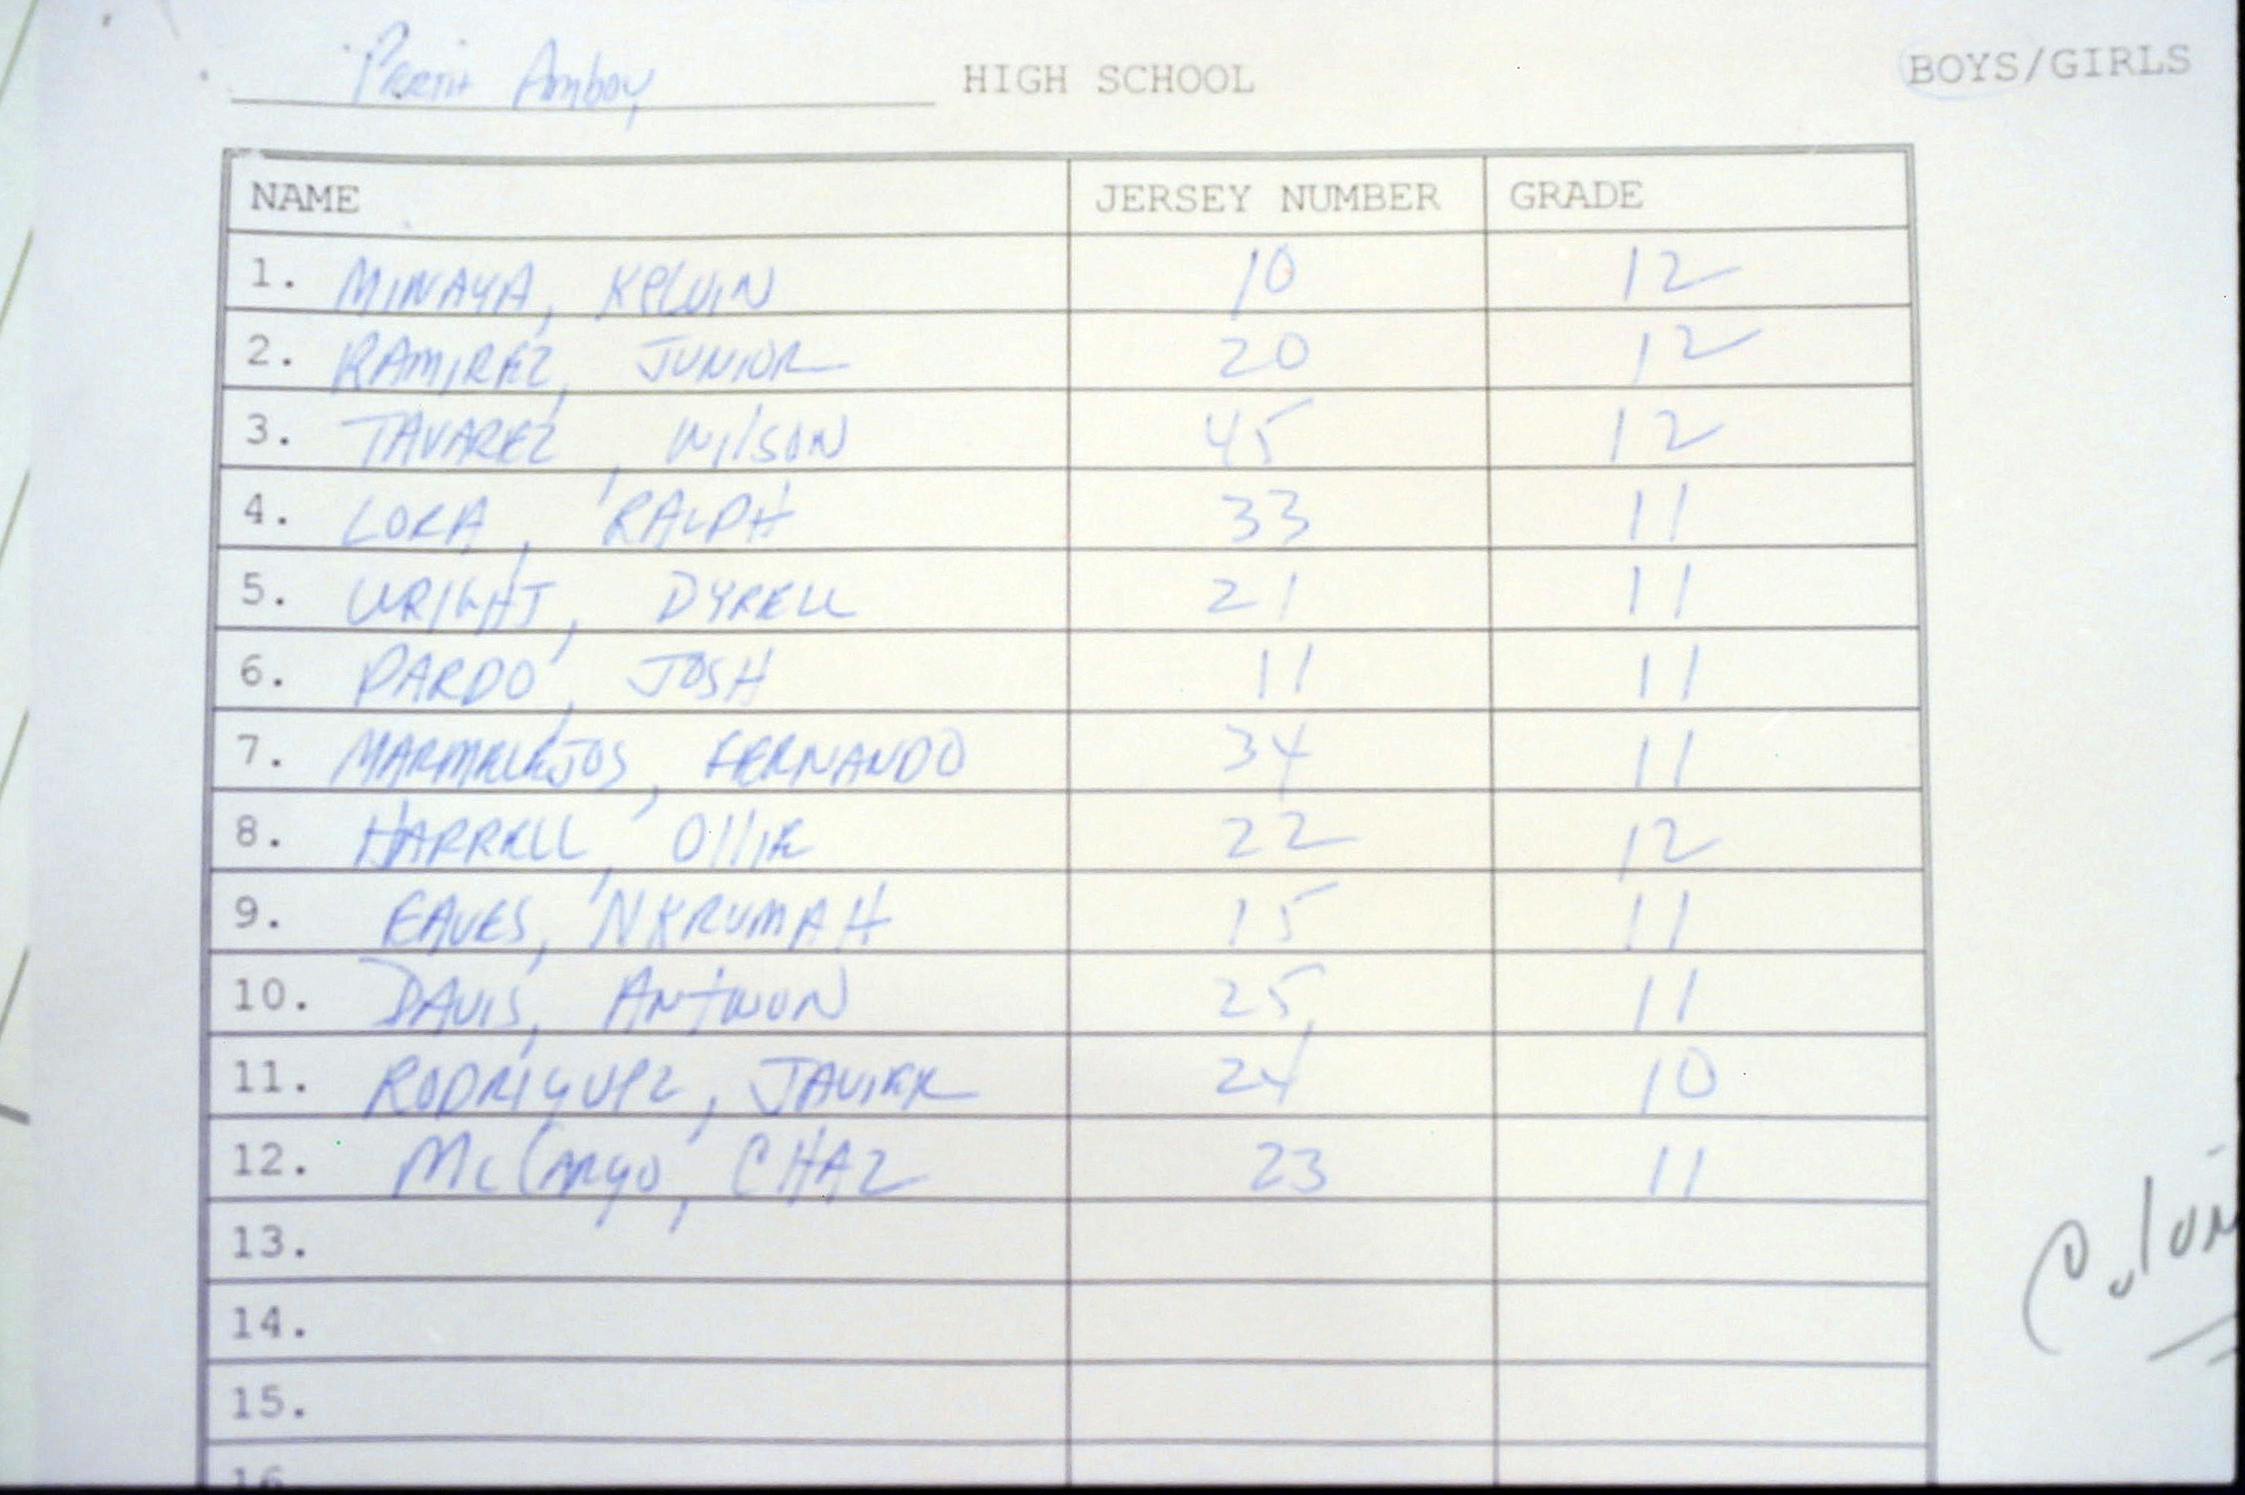 Perth Amboy HIGH SCHOOL BOYS/GIRLS
NAME JERSEY NUMBER GRADE
1. MINAYA, KELVIN 10 12
2. RAMIREZ, JUNIOR 20 12
3. TAVAREZ, WILSON 45 12
4. LORA, RALPH 33 11
5. WRIGHT, DYRELL 21 11
6. PARDO, JOSH 11 11
7. MARMOLEJOS, FERNANDO 34 11
8. HARRELL, OLLIE 22 12
9. EAVES, NKRUMAH 15 11
10. DAVIS, ANTWON 25 11
11. RODRIGUEZ, JAVIER 24 10
12. McCargo, CHAZ 23 11
13.
14.
15.
16.